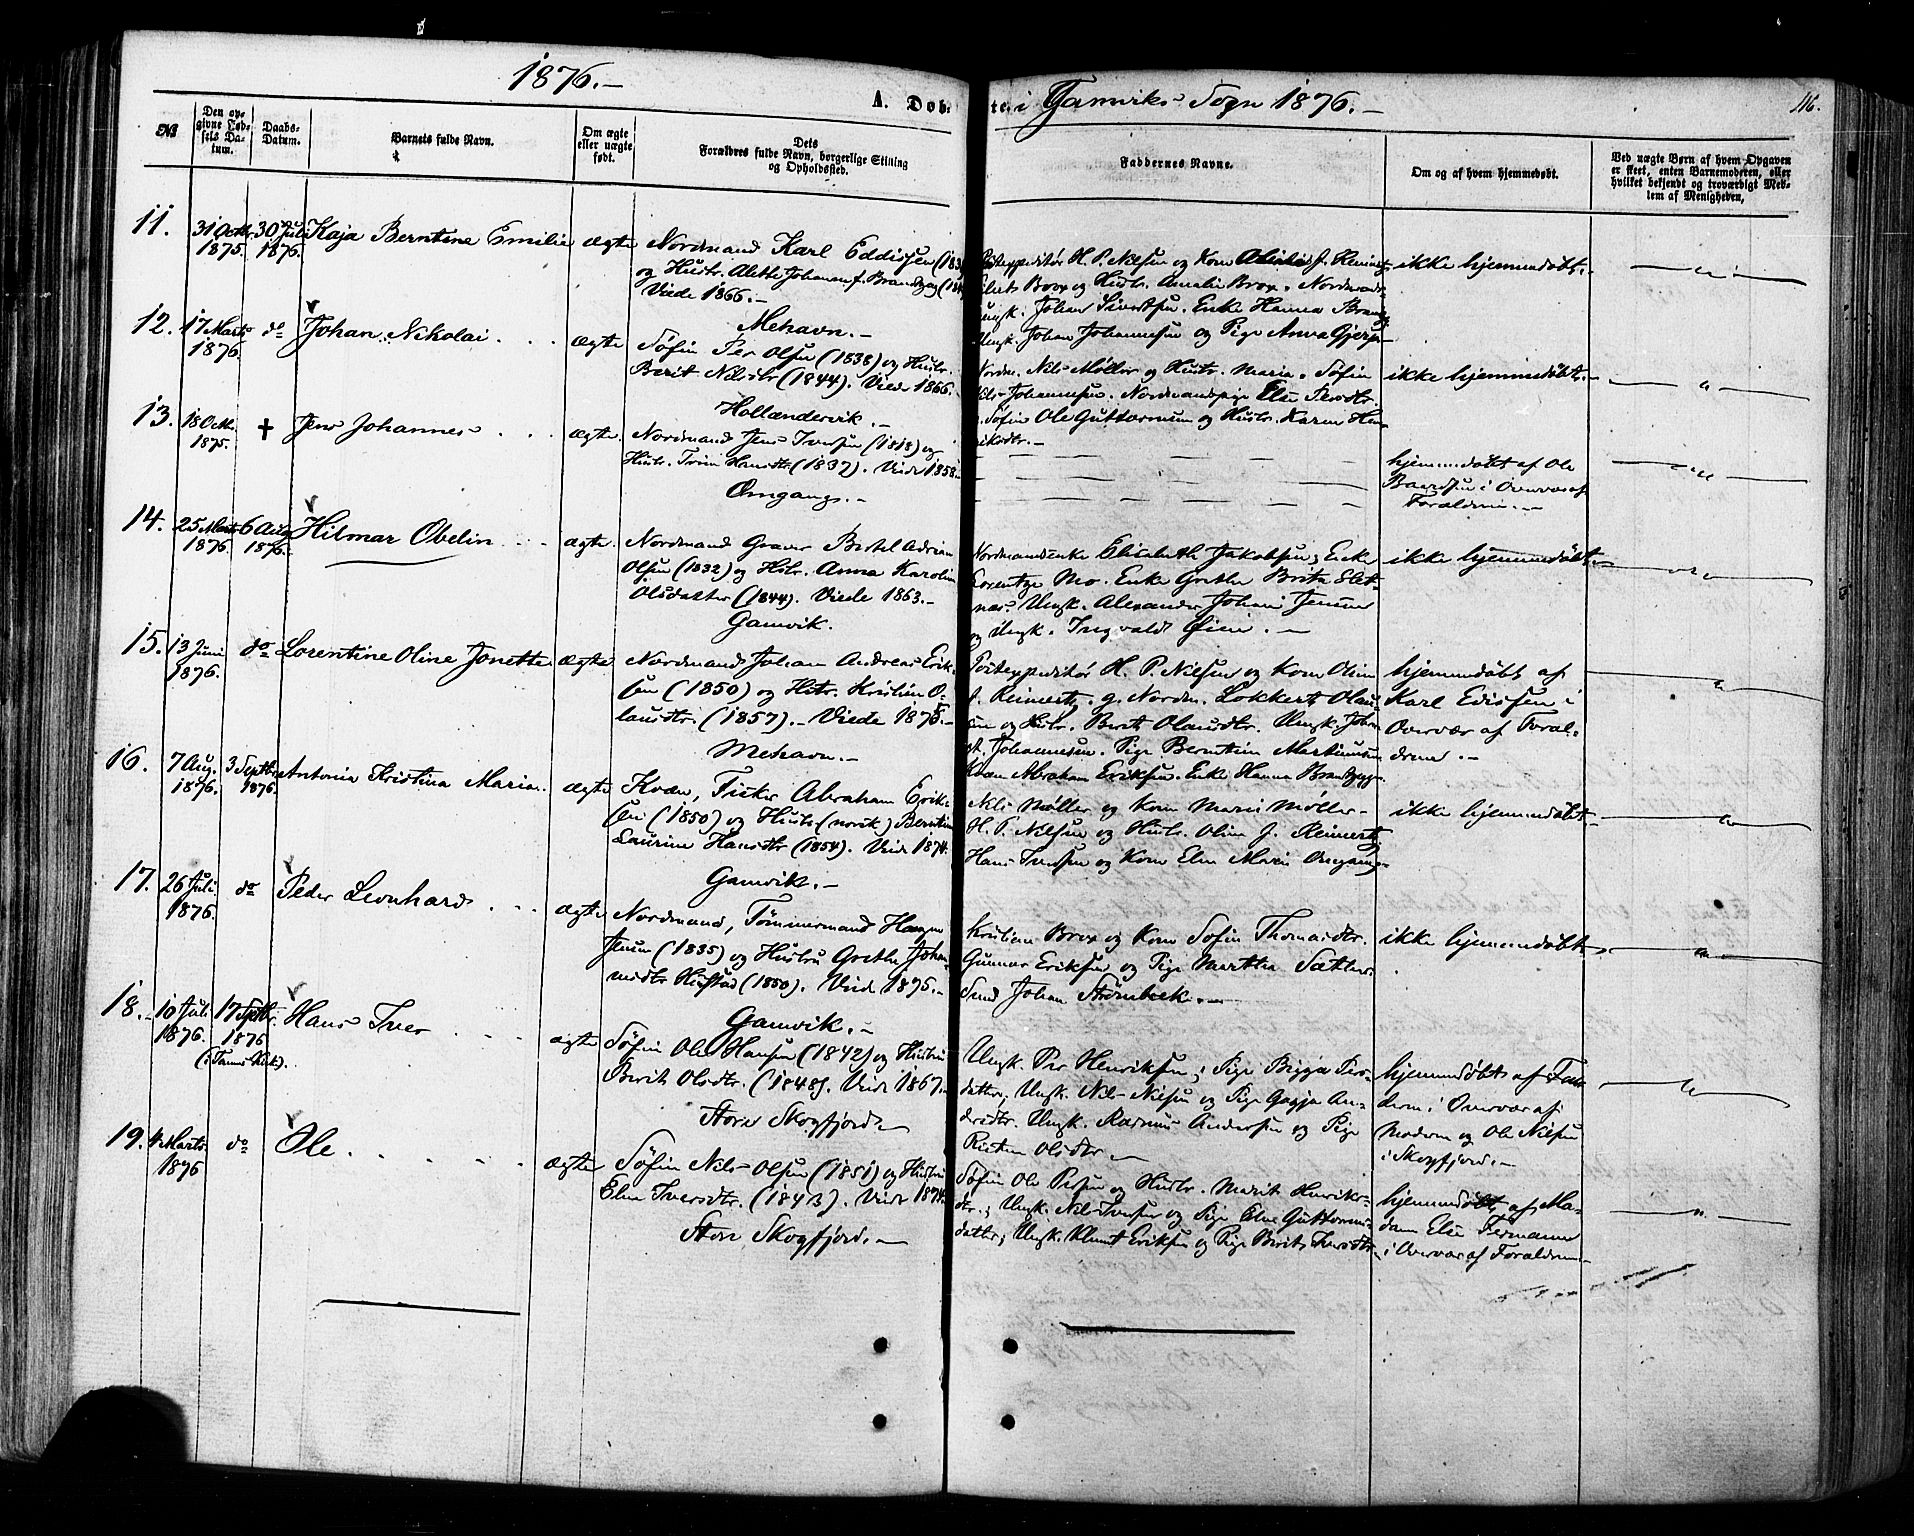 1876.-
A. Dob-
te i Gamviks Sogn 1876.-
116.
No
Den op-
givne Fød-
sels Da-
tum.
Daabs-
Datum.
Barnets fulde Navn.
Om ægte
eller uægte
født.
Dets
Forældres fulde Navn, borgerlige Stilling
og Opholdssted.
Faddernes Navne.
Om og af hvem hjemmedøbt.
Ved uægte Børn af hvem Opgaven
er skeet, enten Barnemoderen, eller
hvilket bekjendt og troværdigt Med-
lem af Menigheden.
11.
31 Octbr.
1875.
30 Juli
1876.
Kaja Berntine Emilie
ægte
Nordmand Karl Eddissen
og Hustr. Alette Johannesd. Brandtzæg
Viede 1866.-
Mehavn.-
H. P. Nilsen og Kone
Brox og Hustr. Amalie Brox. Nordmand
Ungk. Johan Sivertsen. Enke Hanna
Ungk. Johan Johannesen og Pige Anna
ikke hjemmedøbt.
12.
17 Marts
1876.
do
Johan Nikolai
ægte
Søfin Per Olsen (1838) og Hustr.
Berit Nilsdtr (1844). Viede 1866.-
Hollændervik.-
Nordm. Nils Møller og Hustr. Maria. Søfin
Nils Johannesen. Nordmandspige Else Persdtr.
Søfin Ole Guttormsen og Hustr. Karen Hen-
riksdtr.-
ikke hjemmedøbt.-
13.
18 Octbr.
1875.
†
Jens Johannes
ægte.
Nordmand Jens Iversen (1818) og
Hustr. Trine Hansdtr (1837). Viede 1858.
Omgang.-
hjemmedøbt af Ole
Baardsen i Overvær af
Forældrene.-
14.
25 Marts
1876.
6 Aug
1876.
Hilmar Obelin
ægte.
Nordmand Bertel Adrian
Olsen (1832) og Hstr. Anna Karoline
Olsdatter (1844). Viede 1863.-
Gamvik.
Nordmandsenke Elisabeth Jakobsen; Enke
Lorentze Mo. Enke Grethe Brita Slet-
næs. Ungk. Alexander Johan Jensen
og Ungk. Ingvald Øien.-
ikke hjemmedøbt.
15.
13 Juni
1876.
do
Lorentine Oline Jonette
ægte
Nordmand Johan Andreas Erik-
sen (1850) og Hstr. Kristine O-
lausdtr. (1857).- Viede 1875.
Mehavn.-
Postexpeditør H. P. Nilsen og Kone Oline
f. Reinertz. g. Nordm. Lokkert Olau-
sen og Hstr. Berit Olausdtr. Ungk.
Johannesen. Pige Berntine Martinusen
Kvæn Abraham Eriksen. Enke Hanna
hjemmedøbt af
Karl Edissen i
Overvær af Foræl-
drene.-
16.
7 Aug.
1876.
3 Septbr
1876.
Antonia Kristina Maria.
ægte
Kvæn, Fisker Abraham Erik-
sen (1850) og Hustr (norsk) Berntine
Laurine Hansdtr (1854). Viede 1874.
Gamvik.-
Nils Møller og Kone Marie Møller-
H. P. Nilsen og Hustr. Oline f. Reinertz
Hans Iversen og Kone Elen Marie Omgang-
ikke hjemmedøbt-
17.
26 Juli.
1876.
do
Peder Leonhard
ægte
Nordmand, Tømmermand
Jensen (1835) og Hustru Grethe Johan-
nesdtr (1850). Viede 1875.-
Gamvik.-
Kristian Brox og Kone Sofie Thomasdtr.
Gunnar Eriksen og Pige Martha
Johan Strømbæk.-
ikke hjemmedøbt
18.
10 Juli
1876.
17 Septbr.
1876
(i Tanens Kirke).
Hans Iver
ægte
Søfin Ole Hansen (1842) og Hustru
Berit Olsdtr. (1848). Viede 1867.-
Store Skogfjord.-
Ungk. Per Henriksen; Pige Bigga Pers-
datter; Ungk. Nils Nilsen og Pige Gagja An-
dersdtr. Ungk. Rasmus Andersen og Pige
Olsdtr.-
hjemmedøbt af Fa-
deren i Overvær af
Moderen og Ole Nilsen
i Skogfjord.-
19.
4 Marts
1876
do
Ole
ægte
Søfin Nils Olsen (1851) og Hustru
Elen Iversdtr. (1843). Viede 1874.
Store Skogfjord.-
Søfin Ole Persen og Hustr. Marit Henriks-
dtr.; Ungk. Nils Iversen og Pige Elne Guttorms-
datter; Ungk. Klemet Eriksen og Pige Berit Iversdtr.
hjemmedøbt af Ma-
dam Else Fermann
i Overvær af Forældrene-